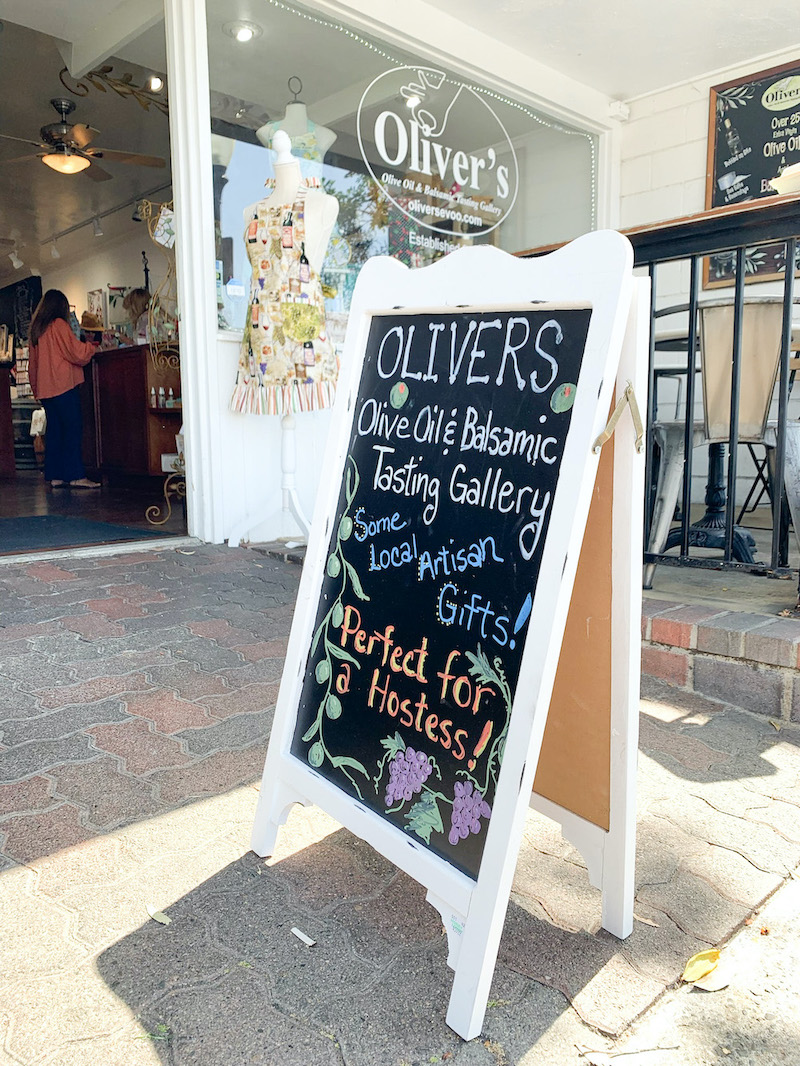 Oliver's
Olive Oil & Balsamic Tasting Gallery
oliversevoo.com
Established
Olive
Over 25
Extra Virgin
Olive Oil
OLIVERS
Olive Oil & Balsamic
Tasting Gallery
Some
Local Artisan
Gifts!
Perfect for
a Hostess!